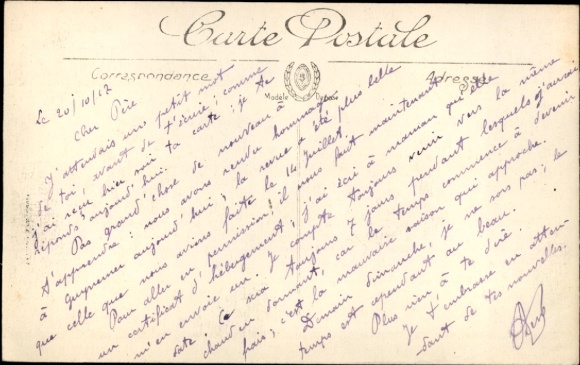 Carte Postale
Correspondance
Adresse
Modèle Déposé
Le 20/10/17
Cher Père
J'attendais un petit mot
de toi, avant de t'écrire; comme
j'ai reçu hier soir ta carte; je te
réponds aujourd'hui.
Pas grand'chose de nouveau à
t'apprendre: nous avons rendu hommage à
Guynemer aujourd'hui; la revue a été plus belle
que celle que nous avions faite le 14 Juillet.
Pour aller en permission! il nous faut maintenant
un certificat d'hébergement; j'ai écrit à maman qu'elle
m'en envoie un. Je compte toujours venir vers la même
date. Ce sera toujours 7 jours pendant lesquels j'aurai
chaud en dormant, car le temps commence à devenir
frais; c'est la mauvaise saison qui approche.
Demain dimanche, je ne sors pas; le
temps est cependant au beau.
Plus rien à te dire.
Je t'embrasse en atten-
dant de tes nouvelles.